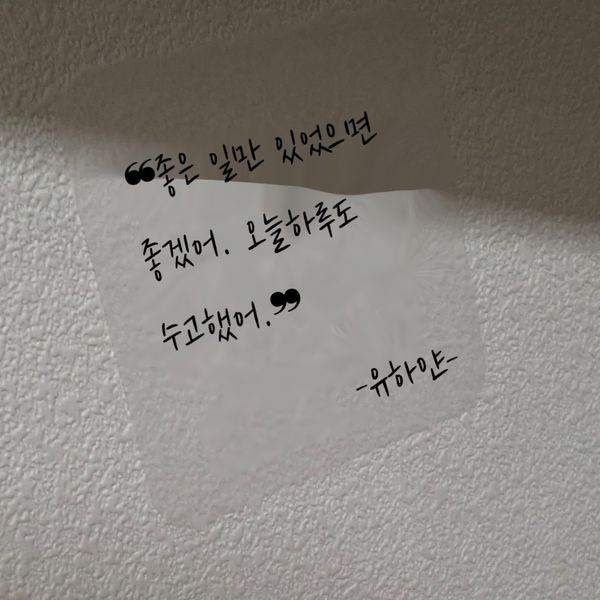 ❝좋은 일만 있었으면
좋겠어. 오늘하루도
수고했어.❞
-유하얀-